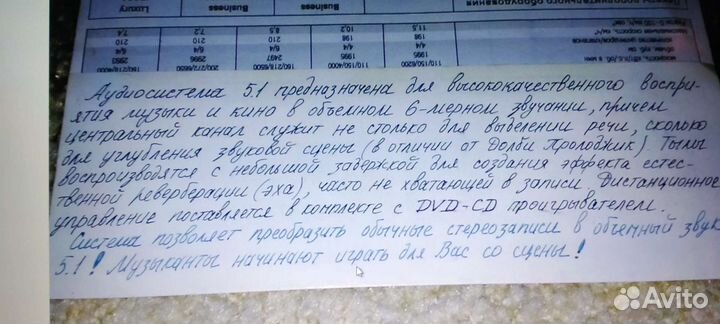 Luxury
Business
Business
7,4
7,2
8,5
10,2
11,5
210
210
210
198
198
6/4
6/4
4/4
4/4
2993
2996
2497
1995
1995
160/218/6500
110/150/4000
110/150/6200
Аудиосистема 5.1 предназначена для высококачественного воспри-
ятия музыки и кино в объемном 6-мерном звучании, причем
центральный канал служит не столько для выделении речи, сколько
для углубления звуковой сцены (в отличии от Долби Прологжик). Тылы
воспроизводятся с небольшой задержкой для создания эффекта естес-
твенной реверберации (эха), часто не хватающей в записи. Дистанционное
управление поставляется в комплекте с DVD-CD проигрывателем.
Система позволяет преобразить обычные стереозаписи в объемный звук
5.1! Музыканты начинают играть для Вас со сцены!
Avito